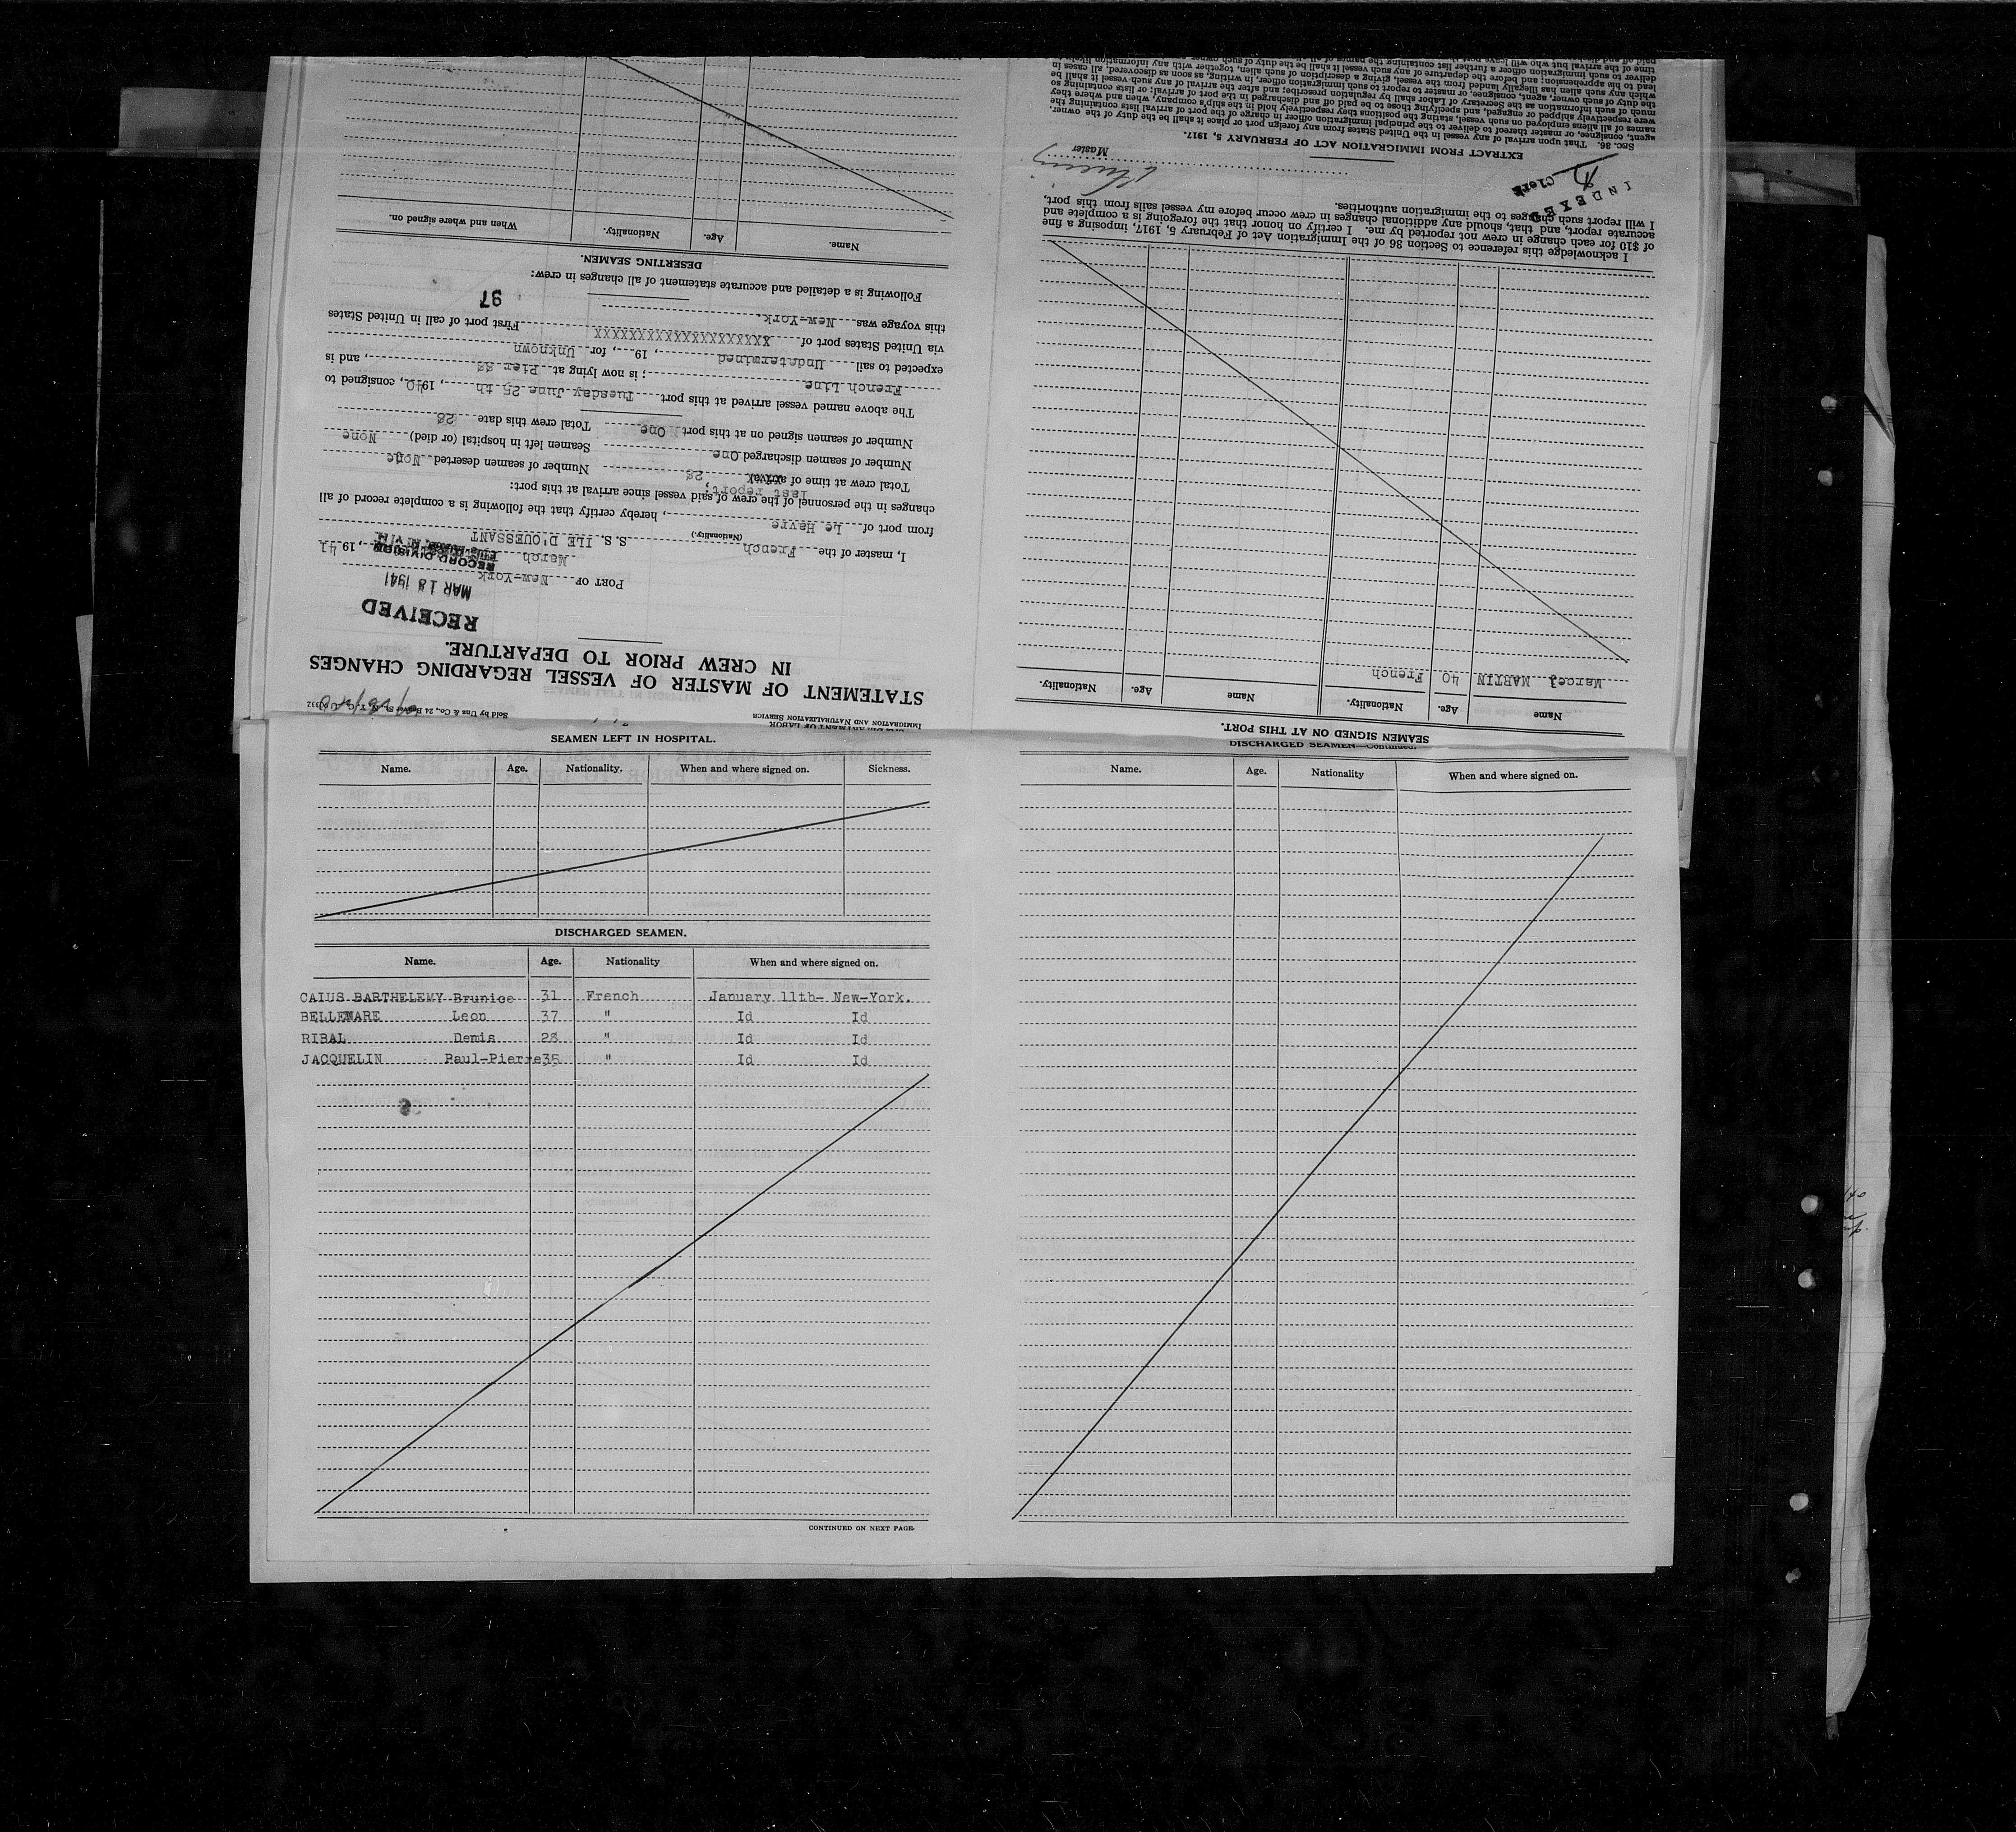 IMMIGRATION AND NATURALIZATION SERVICE
Sold by Unz & Co., 24 Beaver St., N. Y. C.
STATEMENT OF MASTER OF VESSEL REGARDING CHANGES
IN CREW PRIOR TO DEPARTURE.
RECEIVED
MAR 18 1941
RECORD DIVISION
PORT OF New-York
March , 1941
I, master of the French S.S. ILE D'OUESSANT
(Nationality.)
from port of Le Havre, hereby certify that the following is a complete record of all
changes in the personnel of the crew of said vessel since arrival at this port:
last report:
Total crew at time of arrival, 28 Number of seamen deserted None
Number of seamen discharged One Seamen left in hospital (or died) None
Number of seamen signed on at this port One Total crew this date 28
The above named vessel arrived at this port Tuesday June 25 th, 1940, consigned to
French Line; is now lying at Pier 88, and is
expected to sail Undetermined, 19 , for Unknown
via United States port of XXXXXXXXXXXXXXXXXXXXX First port of call in United States
this voyage was New-York.
97
Following is a detailed and accurate statement of all changes in crew:
DESERTING SEAMEN.
Name. Age. Nationality. When and where signed on.
SEAMEN SIGNED ON AT THIS PORT.
Name Age. Nationality. Name Age. Nationality.
Marcel MARTIN 40 French
I acknowledge this reference to Section 36 of the Immigration Act of February 5, 1917, imposing a fine
of $10 for each change in crew not reported by me. I certify on honor that the foregoing is a complete and
accurate report, and that, should any additional changes in crew occur before my vessel sails from this port,
I will report such changes to the immigration authorities.
INDEXED
Clerk
Master
EXTRACT FROM IMMIGRATION ACT OF FEBRUARY 5, 1917.
SEC. 36. That upon arrival of any vessel in the United States from any foreign port or place it shall be the duty of the owner,
agent, consignee, or master thereof to deliver to the principal immigration officer in charge of the port of arrival lists containing the
names of all aliens employed on such vessel, stating the positions they respectively hold in the ship's company, when and where they
were respectively shipped or engaged, and specifying those to be paid off and discharged in the port of arrival; or lists containing so
much of such information as the Secretary of Labor shall by regulation prescribe; and after the arrival of any such vessel it shall be
the duty of such owner, agent, consignee, or master to report to such immigration officer, in writing, as soon as discovered, all cases in
which any such alien has illegally landed from the vessel, giving a description of such alien, together with any information likely to
lead to his apprehension; and before the departure of any such vessel it shall be the duty of such owner,
deliver to such immigration officer a further list containing the names of all
time of the arrival but who will leave port
SEAMEN LEFT IN HOSPITAL.
Name. Age. Nationality. When and where signed on. Sickness.
DISCHARGED SEAMEN.
Name. Age. Nationality When and where signed on.
CAIUS BARTHELEMY Brunice 31 French January 11th- New-York.
BELLEMARE Leon 37 " Id Id
RIBAL Demis 28 " Id Id
JACQUELIN Paul-Pierre 35 " Id Id
CONTINUED ON NEXT PAGE.
DISCHARGED SEAMEN—Continued.
Name. Age. Nationality When and where signed on.